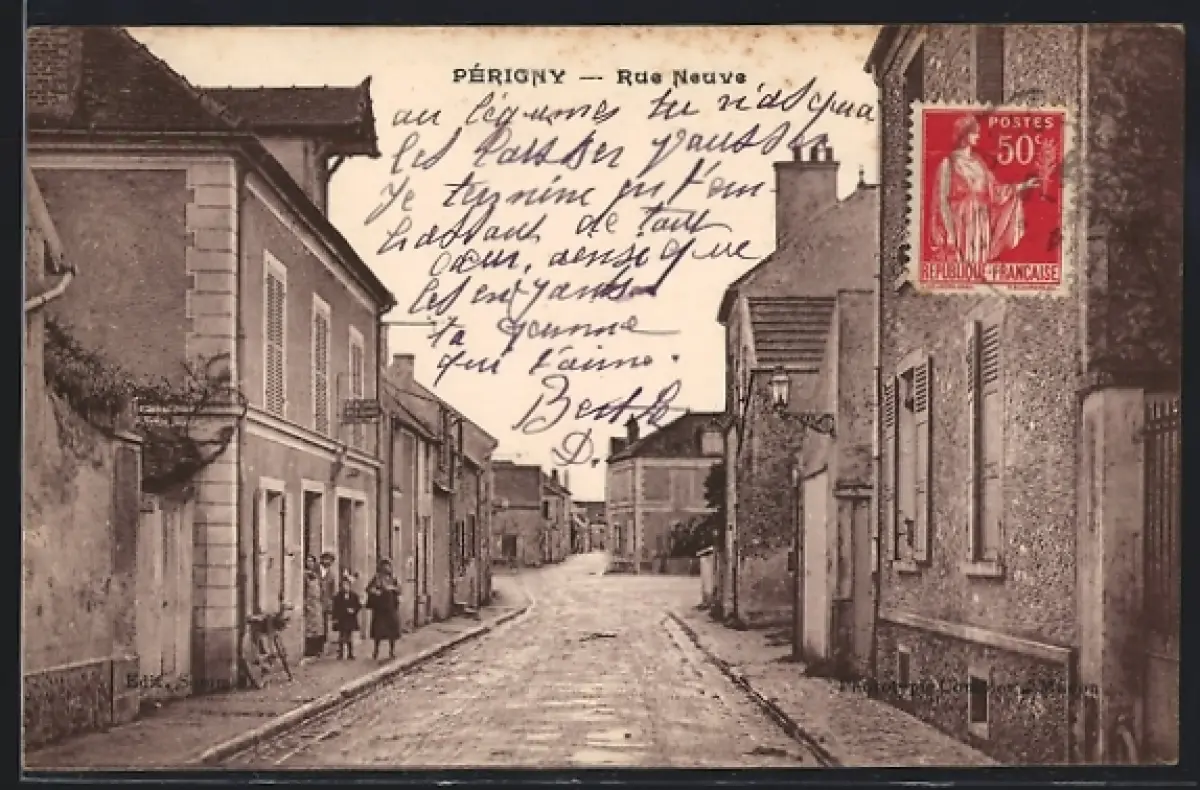 PÉRIGNY — Rue Neuve
POSTES
50c
au légumes tu n'as qu'a
les laisser
Je termine en t'em
brassant de tout
cœur, ainsi que
les enfants
ta femme
qui t'aime.
Berthe
D.
REPUBLIQUE FRANÇAISE
Edit.
Phototypie